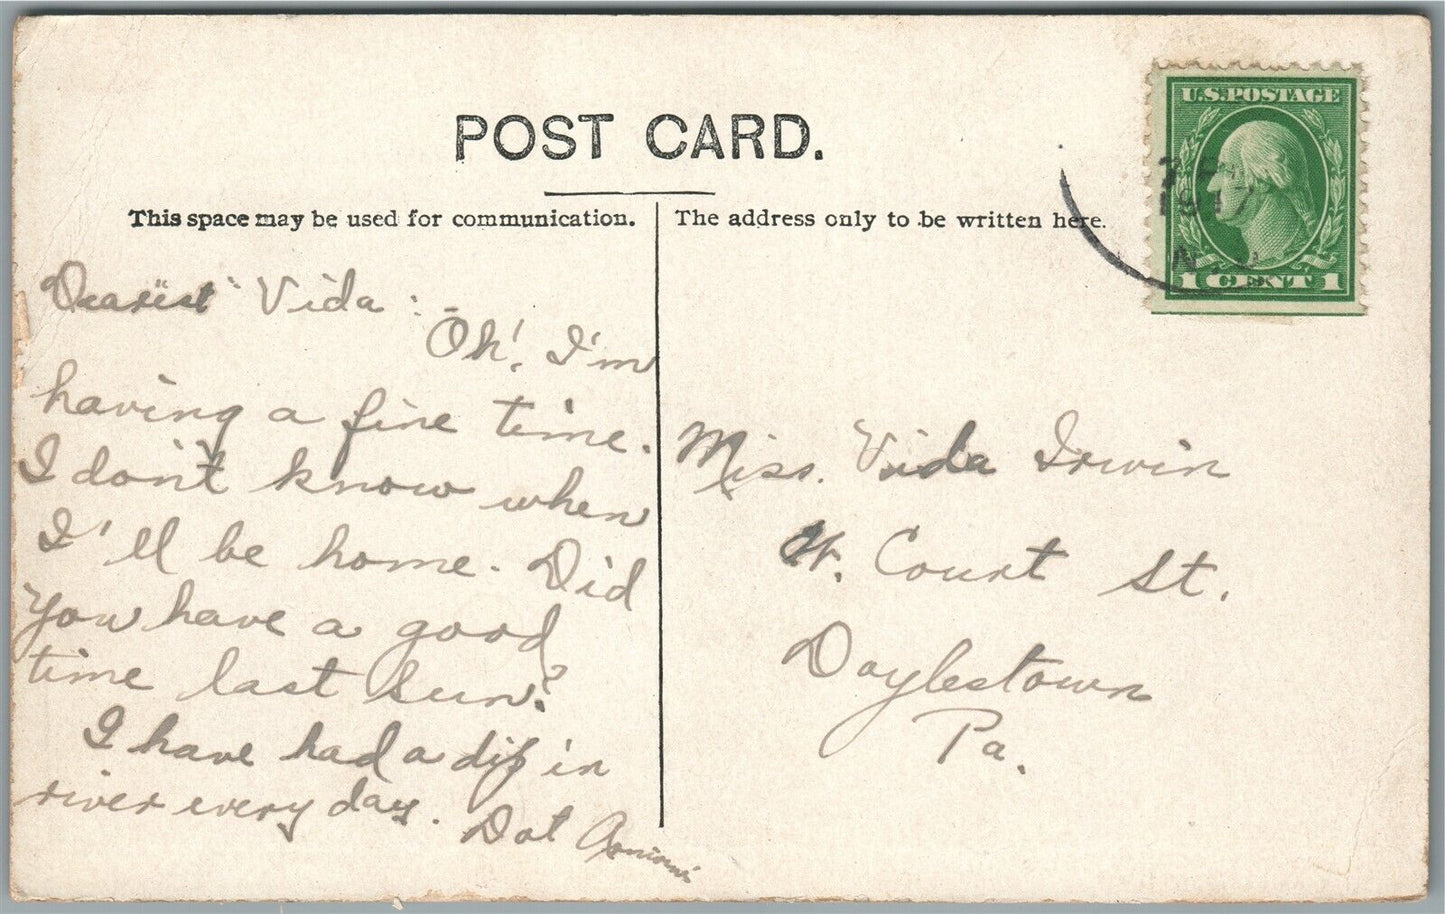 POST CARD.
This space may be used for communication.
The address only to be written here.
U.S. POSTAGE
1 CENT 1
1917
N.
"Dearest" Vida:
Oh! I'm
having a fine time.
I don't know when
I'll be home. Did
you have a good
time last Sun?
I have had a dip in
river every day.
Dot
Miss. Vida Irwin
W. Court St.
Doylestown
Pa.